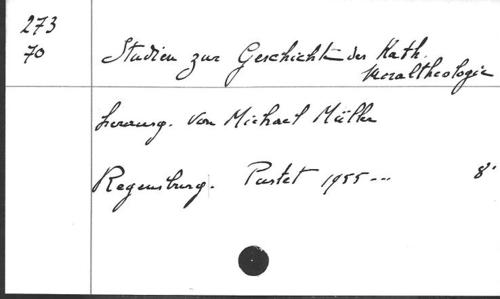 273
70
Studien zur Geschichte der Kath.
Moraltheologie
herausg. von Michael Müller
Regensburg. Pustet 1955 --- 8°